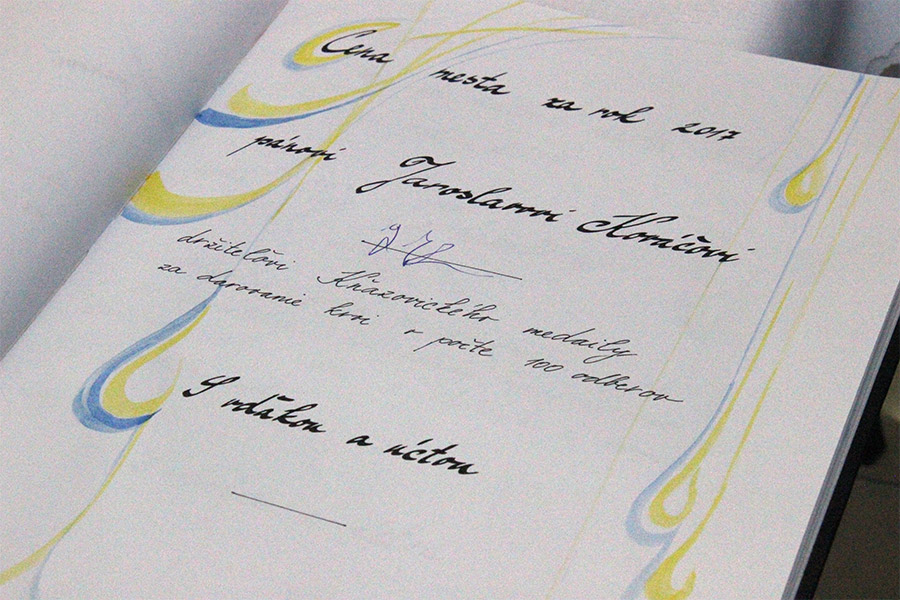 Cena mesta za rok 2017
pánovi Jaroslavovi Kováčovi
držiteľovi Kňazovického medaily
za darovanie krvi v počte 100 odberov
S vďakou a úctou